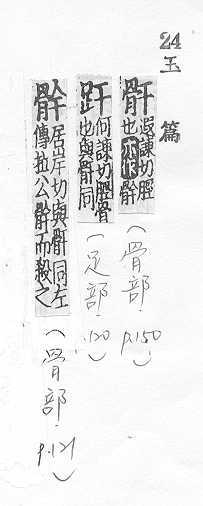 24 玉篇
骭 遐諫切脛也
(骨部. p.150)
何諫切脛骨也與骭同
(足部. .120)
居岸切與骭同左傳拉公而殺之
(骨部. p.121)